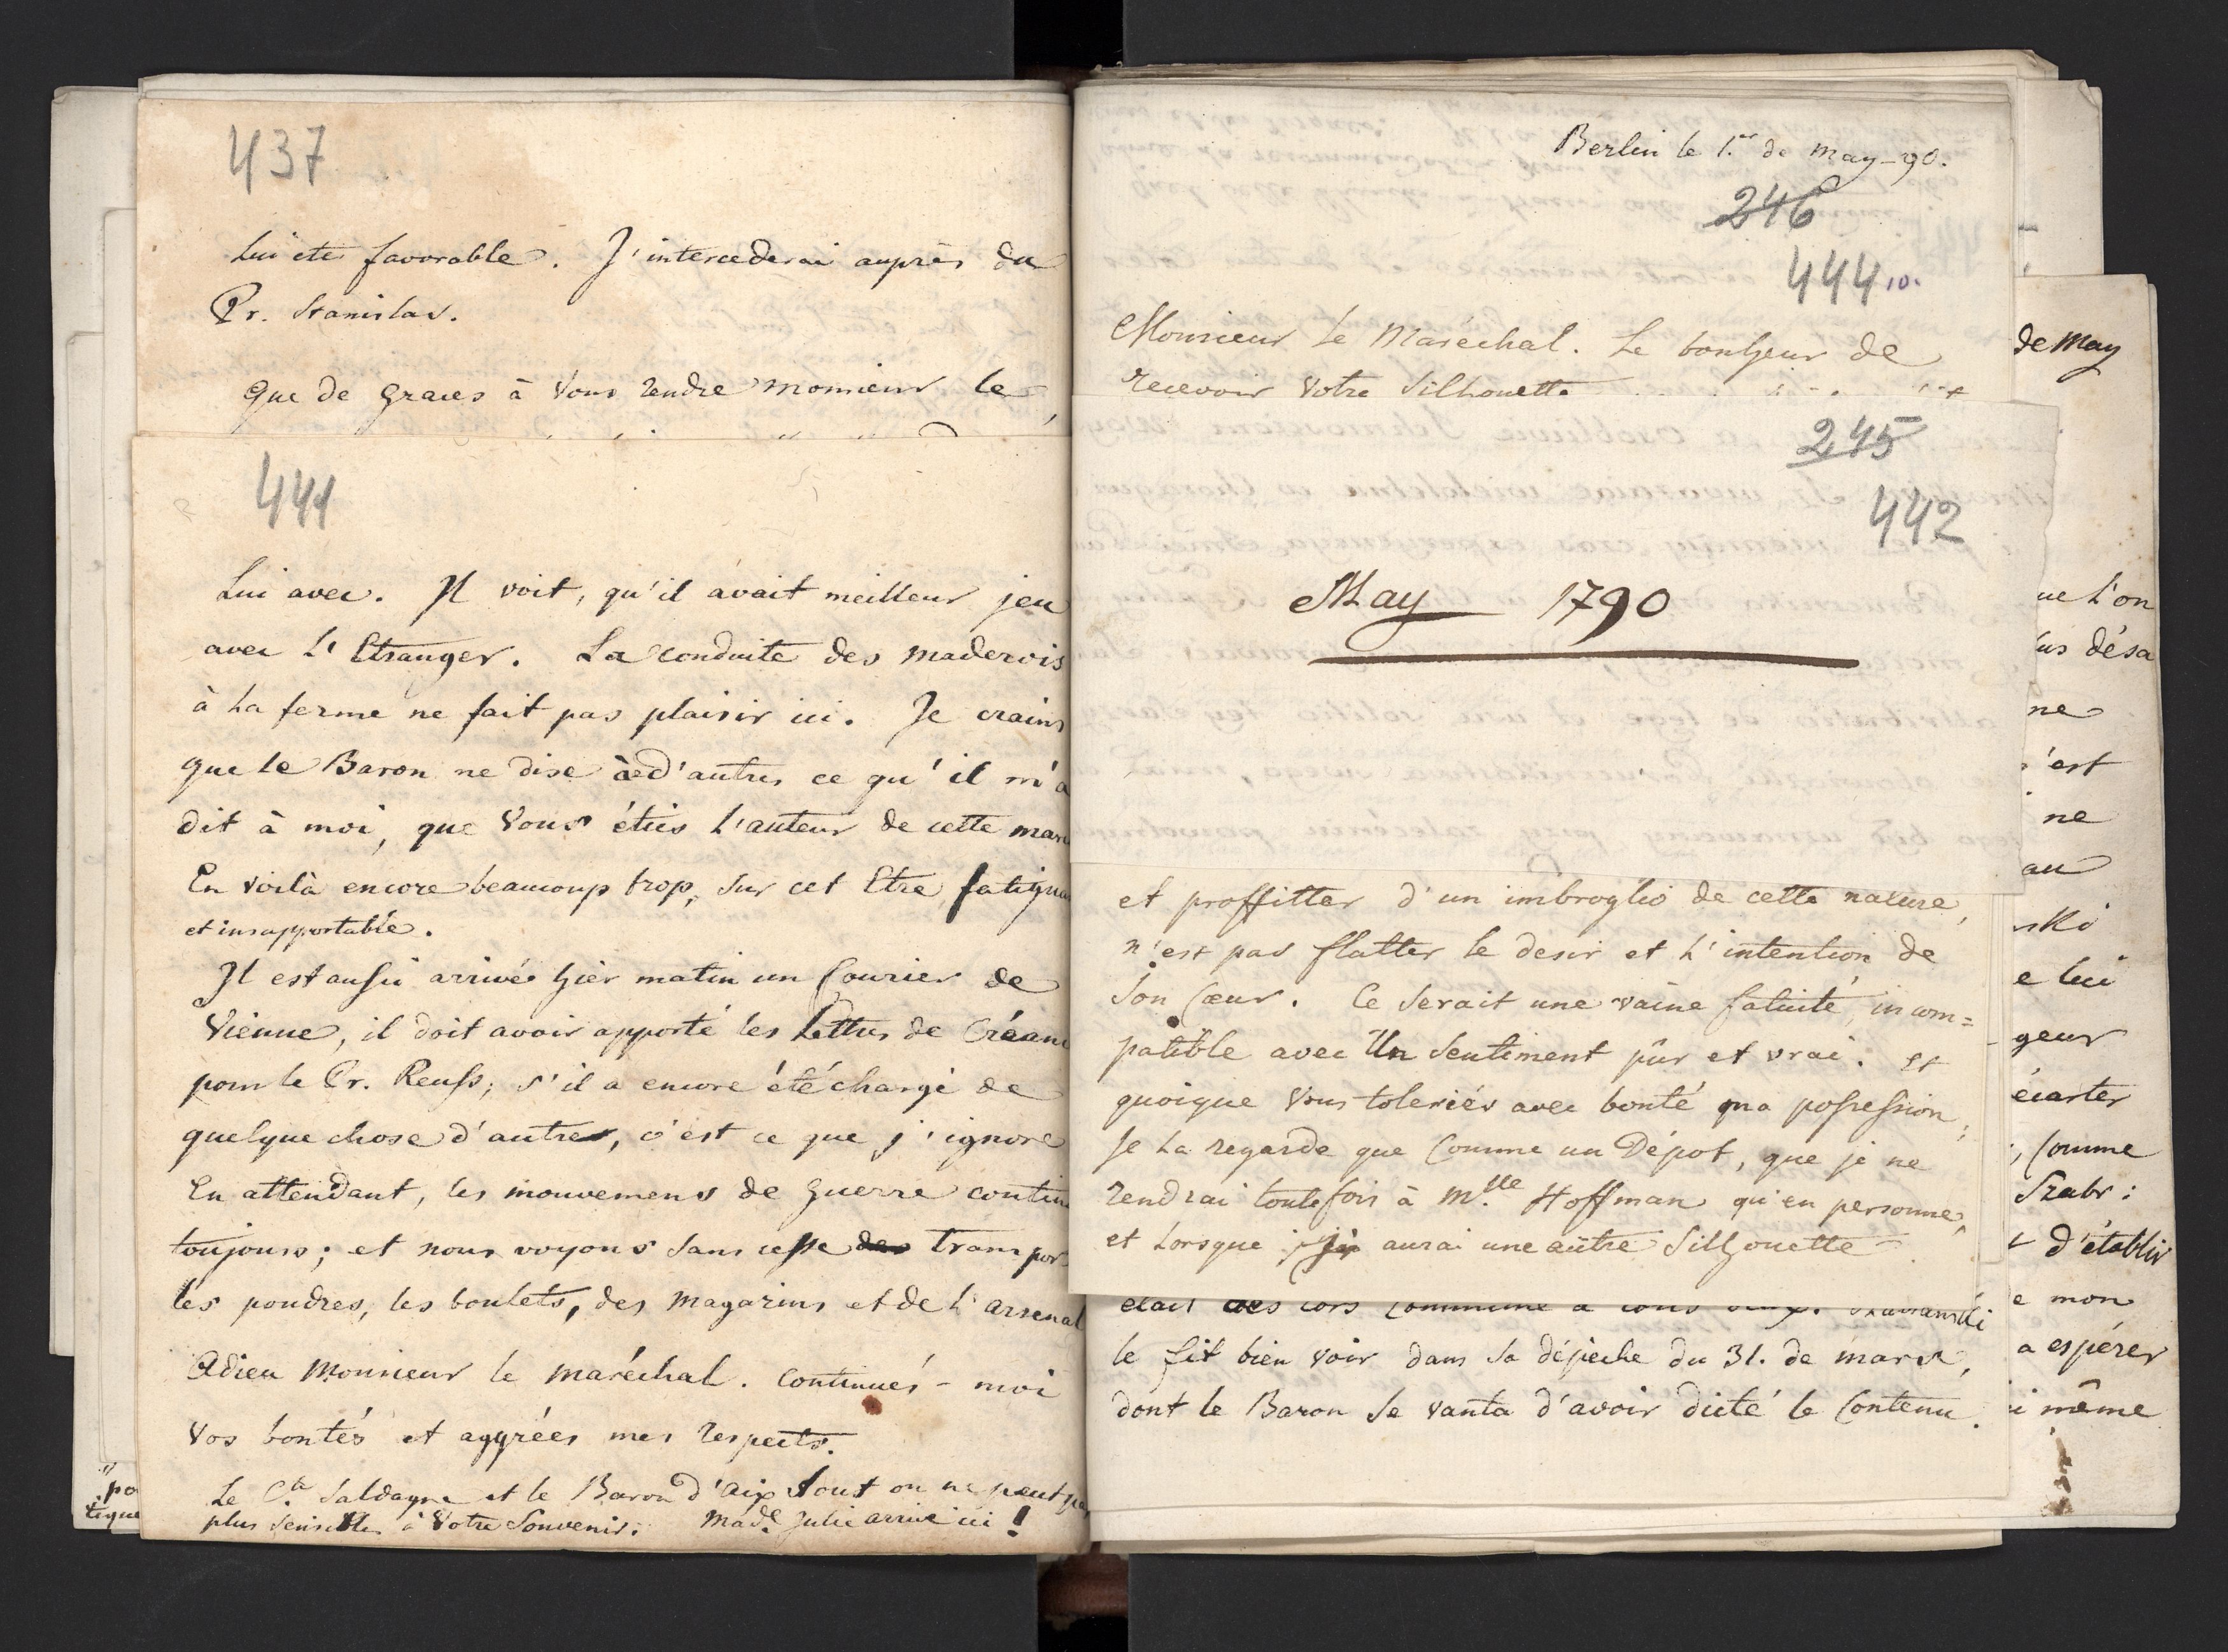 437
Lui ete favorable. J'intercederai auprès du
Pr. Stanislas.
que de graces à vous rendre monsieur le
441
Lui avec. Il voit, qu'il avait meilleur jeu
avec L'Etranger. La conduite des maderois
à La ferme ne fait pas plaisir ici. Je crains
que le Baron ne dise à d'autres ce qu'il m'a
dit à moi, que Vous étiés L'auteur de cette
En voilà encore beaucoup trop, Sur cet Etre
et insupportable.
Il est aussi arrivé hier matin un Courier de
Vienne, il doit avoir apporté les Lettres de
pour le Pr. Reuss; s'il a encore été chargé de
quelque chose d'autre, c'est ce que j'ignore
En attendant, les mouvemens de guerre
toujours; et nous voyons sans cesse des
les poudres, les boulets, des magazins et de L'arsenal
Adieu Monsieur le maréchal. Continués-moi
vos bontés et aggréés mes respects.
Le Cte Saldagne et le Baron d'Aix sont on ne peut
plus sensibles à Votre Souvenir. Made Julie arrive ici!
po
tique
Berlin le 1.er de may-90.
246
444 10.
Monsieur le Maréchal. Le bonheur de
recevoir Votre Silhouette
245
442
May 1790
et proffitter d'un imbroglio de cette nature,
n'est pas flatter le desir et L'intention de
son Cœur. Ce Serait une vaine fatuité, incom=
patible avec Un Sentiment pûr et vrai. et
quoique Vous toleriés avec bonté ma possession,
je La regarde que Comme un Dépot, que je ne
rendrai toutefois à Mlle Hoffman qu'en personne,
et Lorsque j'aurai une autre Silhouette
était dès lors commune à tous deux.
le fit bien voir dans Sa dépeche du 31. de mars,
dont le Baron Se vanta d'avoir dicté le Contenu.
de May
ue L'on
us désa
ne
'est
ne
au
ski
e lui
geur
écarter
, Comme
Szabr:
d'établir
e mon
a espérer
i même